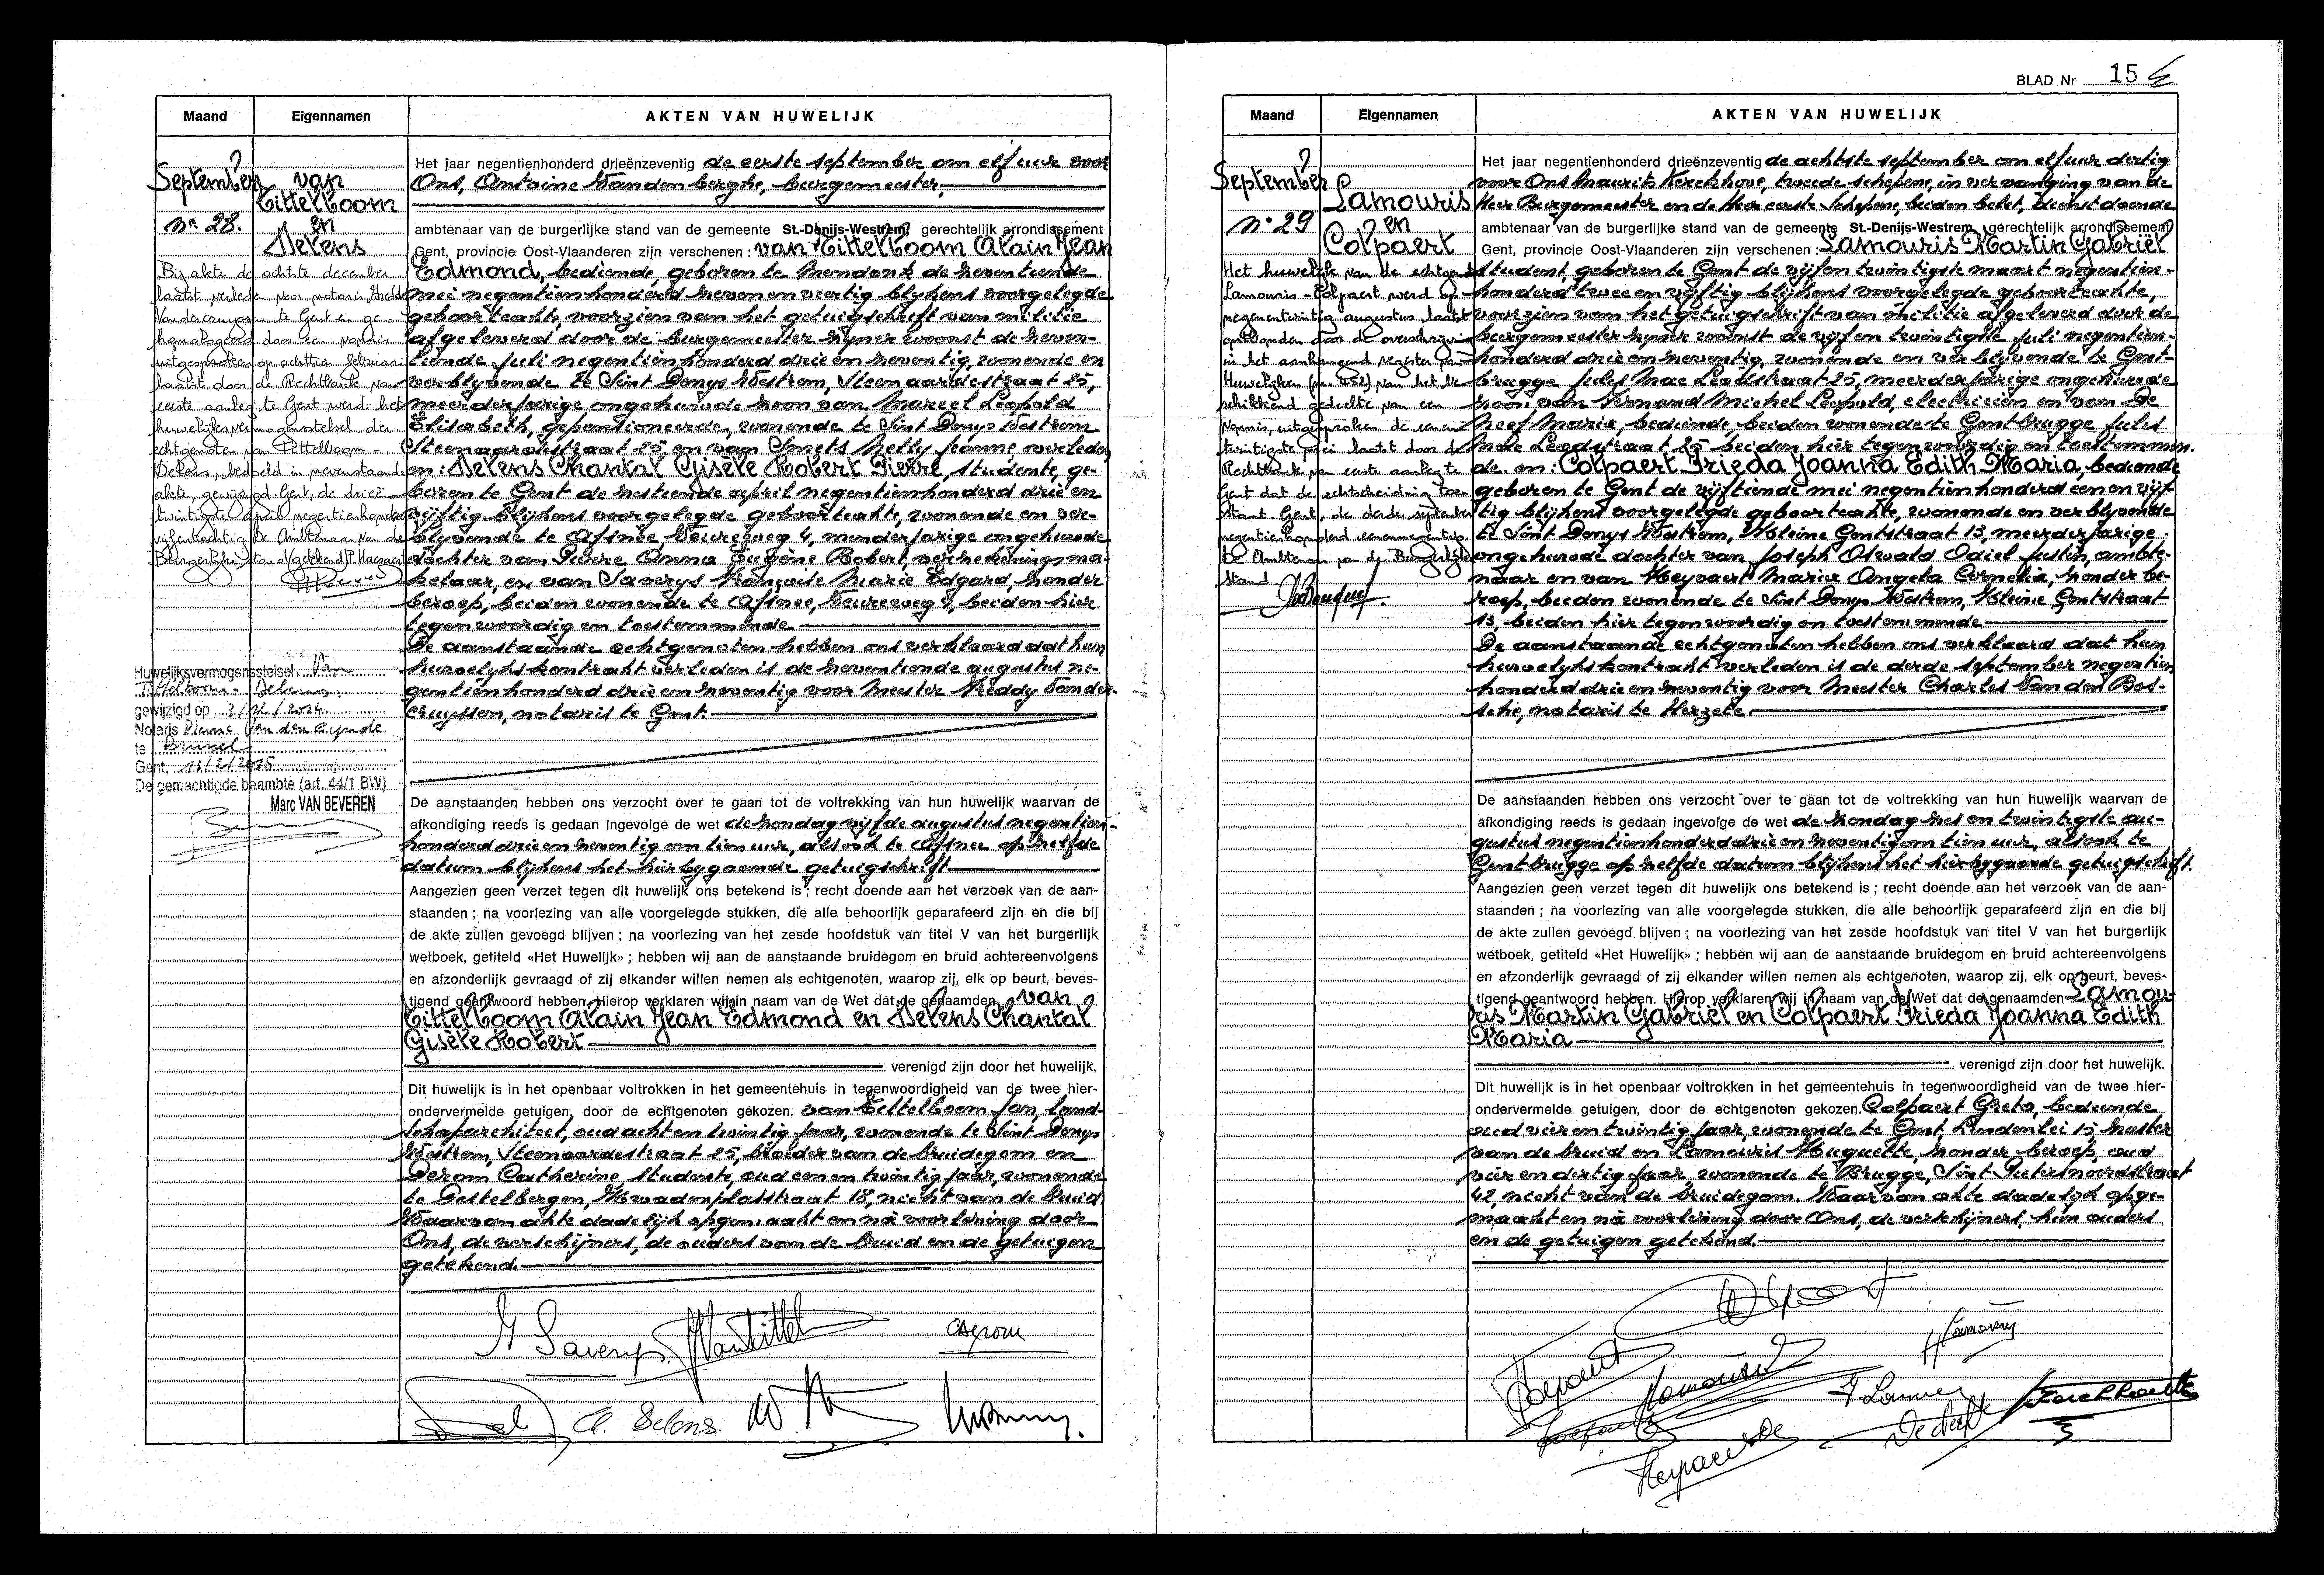 Maand Eigennamen AKTEN VAN HUWELIJK
September
n° 28.
van
Tittelboom
en
Delens
Het jaar negentienhonderd drieënzeventig de eerste september om elf uur voor
Ons, Antoine Vandenberghe, burgemeester,
ambtenaar van de burgerlijke stand van de gemeente St.-Denijs-Westrem, gerechtelijk arrondissement
Gent, provincie Oost-Vlaanderen zijn verschenen : van Tittelboom Alain Jean
Edmond, bediende, geboren te Mendonk de zeventiende
mei negentienhonderd zevenenveertig blijkens voorgelegde
geboorteakte, voorzien van het getuigschrift van militie
afgeleverd door de burgemeester zijner woonst de zeven-
tiende juli negentienhonderd drieënzeventig, wonende en
verblijvende te Sint Denys Westrem, Steenaardestraat 25,
meerderjarige ongehuwde zoon van Marcel Leopold
Elisabeth, gepensioneerde, wonende te Sint Denys Westrem
Steenaardestraat 25 en van Smets Nelly Jeanne, overleden
en : Delens Chantal Gisèle Robert Pierre, studente, ge-
boren te Gent de zestiende april negentienhonderd drieën
vijftig blijkens voorgelegde geboorteakte, wonende en ver-
blijvende te Afsnee Veureweg 4, minderjarige ongehuwde
dochter van Pierre Anna Eugène Robert, verzekeringsma-
kelaar, en van Saverys Françoise Marie Edgard, zonder
beroep, beiden wonende te Afsnee, Veureweg 4, beiden hier
tegenwoordig en toestemmende
De aanstaande echtgenoten hebben ons verklaard dat hun
huwelijkskontrakt verleden is de zeventiende augustus ne-
gentienhonderd drieënzeventig voor Meester Freddy Vander-
cruyssen, notaris te Gent.
Bij akte de achtste december
laatst verleden voor notaris Freddy
Vandercruyssen te Gent en ge-
homologeerd door een vonnis
uitgesproken op achttien februari
laatst door de Rechtbank van
eerste aanleg te Gent werd het
huwelijksvermogensstelsel der
echtgenoten van Tittelboom-
Delens, bedoeld in nevenstaande
akte, gewijzigd. Gent, de drieën-
twintigste april negentienhonderd
vijfentachtig. De Ambtenaar van de
Burgerlijke stand
Huwelijksvermogensstelsel Van
Tittelboom - Delens,
gewijzigd op 3/12/2014
Notaris Pierre Van den Eynde
te Brussel
Gent, 13/2/2015
De gemachtigde beambte (art. 44/1 BW)
Marc VAN BEVEREN
De aanstaanden hebben ons verzocht over te gaan tot de voltrekking van hun huwelijk waarvan de
afkondiging reeds is gedaan ingevolge de wet de zondag vijfde augustus negentien-
honderd drieënzeventig om tien uur, alsook te Afsnee op zelfde
datum blijkens het hierbygaande getuigschrift
Aangezien geen verzet tegen dit huwelijk ons betekend is ; recht doende aan het verzoek van de aan-
staanden ; na voorlezing van alle voorgelegde stukken, die alle behoorlijk geparafeerd zijn en die bij
de akte zullen gevoegd blijven ; na voorlezing van het zesde hoofdstuk van titel V van het burgerlijk
wetboek, getiteld «Het Huwelijk» ; hebben wij aan de aanstaande bruidegom en bruid achtereenvolgens
en afzonderlijk gevraagd of zij elkander willen nemen als echtgenoten, waarop zij, elk op beurt, beves-
tigend geantwoord hebben. Hierop verklaren wij in naam van de Wet dat de genaamden van
Tittelboom Alain Jean Edmond en Delens Chantal
Gisèle Robert
verenigd zijn door het huwelijk.
Dit huwelijk is in het openbaar voltrokken in het gemeentehuis in tegenwoordigheid van de twee hier-
ondervermelde getuigen, door de echtgenoten gekozen. van Tittelboom Jan, land-
schaparchitect, oud achtentwintig jaar, wonende te Sint Denys
Westrem, Steenaardestraat 25, broeder van de bruidegom en
Derom Catherine studente, oud eenentwintig jaar, wonende
te Destelbergen, Kwadenplasstraat 18, nicht van de bruid
Waarvan akte dadelijk opgemaakt en nà voorlezing door
Ons, de verschijners, de ouders van de bruid en de getuigen
getekend.
Saverys
C. Derom
C. Delens.
BLAD Nr 15
Maand Eigennamen AKTEN VAN HUWELIJK
September
n° 29
Lamouris
en
Colpaert
Het jaar negentienhonderd drieënzeventig de achtste september om elf uur dertig
voor Ons Maurits Kerckhove, tweede schepene, in vervanging van de
Heer Burgemeester en de Heer eerste Schepene, beiden belet, dienstdoende
ambtenaar van de burgerlijke stand van de gemeente St.-Denijs-Westrem, gerechtelijk arrondissement
Gent, provincie Oost-Vlaanderen zijn verschenen : Lamouris Martin Gabriël
student, geboren te Gent de vijfentwintigste maart negentien-
honderd tweeenvijftig blijkens voorgelegde geboorteakte,
voorzien van het getuigschrift van militie afgeleverd door de
burgemeester zijner woonst de vijfentwintigste juli negentien-
honderd drieënzeventig, wonende en verblijvende te Gent-
brugge Jules Mac Leodstraat 25, meerderjarige ongehuwde
zoon van Fernand Michel Leopold, electricien en van De
Neef Maria, bediende, beiden wonende te Gentbrugge Jules
Mac Leodstraat 25 beiden hier tegenwoordig en toestemmen-
de. en : Colpaert Frieda Joanna Edith Maria, bediende
geboren te Gent de vijftiende mei negentienhonderd eenenvijf-
tig blijkens voorgelegde geboorteakte, wonende en verblijvende
te Sint Denys Westrem, Kleine Gentstraat 13, meerderjarige
ongehuwde dochter van Joseph Oswald Odiel Justin, ambte-
naar en van Heyvaert Maria Angela Cornelia, zonder be-
roep, beiden wonende te Sint Denys Westrem, Kleine Gentstraat
13, beiden hier tegenwoordig en toestemmende
De aanstaande echtgenoten hebben ons verklaard dat hun
huwelijkskontrakt verleden is de derde september negentien
honderd drieënzeventig voor Meester Charles Van den Bos-
sche, notaris te Herzele.
Het huwelijk van de echtgenoten
Lamouris-Colpaert werd op
negenentwintig augustus laatst
ontbonden door de overschrijving
in het aanhangend register van
Huwelijken van het be-
schikkend gedeelte van een
vonnis, uitgesproken de eenen
twintigste mei laatst door de
Rechtbank van eerste aanleg te
Gent dat de echtscheiding toe-
staat. Gent, de derde september
negentienhonderd
De Ambtenaar van de Burgerlijke
Stand.
De aanstaanden hebben ons verzocht over te gaan tot de voltrekking van hun huwelijk waarvan de
afkondiging reeds is gedaan ingevolge de wet de zondag zesentwintigste au-
gustus negentienhonderd drieënzeventig om tien uur, alsook te
Gentbrugge op zelfde datum blijkens het hierbygaande getuigschrift.
Aangezien geen verzet tegen dit huwelijk ons betekend is ; recht doende aan het verzoek van de aan-
staanden ; na voorlezing van alle voorgelegde stukken, die alle behoorlijk geparafeerd zijn en die bij
de akte zullen gevoegd blijven ; na voorlezing van het zesde hoofdstuk van titel V van het burgerlijk
wetboek, getiteld «Het Huwelijk» ; hebben wij aan de aanstaande bruidegom en bruid achtereenvolgens
en afzonderlijk gevraagd of zij elkander willen nemen als echtgenoten, waarop zij, elk op beurt, beves-
tigend geantwoord hebben. Hierop verklaren wij in naam van de Wet dat de genaamden Lamou-
ris Martin Gabriël en Colpaert Frieda Joanna Edith
Maria
verenigd zijn door het huwelijk.
Dit huwelijk is in het openbaar voltrokken in het gemeentehuis in tegenwoordigheid van de twee hier-
ondervermelde getuigen, door de echtgenoten gekozen. Colpaert Greta, bediende
oud vierentwintig jaar, wonende te Gent, Lindenlei 15, zuster
van de bruid en Lamouris Huguette, zonder beroep, oud
vierendertig jaar, wonende te Brugge, Sint Pietersnoordstraat
42, nicht van de bruidegom. Waarvan akte dadelijk opge-
maakt en nà voorlezing door Ons, de verschijners, hun ouders
en de getuigen getekend.
Colpaert
Lamouris